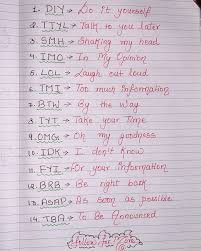 1. DIY → Do it yourself
2. TTYL → Talk to you later
3. SMH → Shaking my head
4. IMO → In My Opinion
5. LOL → Laugh out loud
6. TMI → Too much Information
7. BTW → By the Way
8. TYT → Take your Time
9. OMG → Oh my goodness
10. IDK → I don't know
11. FYI → For your Information
12. BRB → Be right back
13. ASAP → As soon as possible
14. TBA → To be Announced
Follow for more